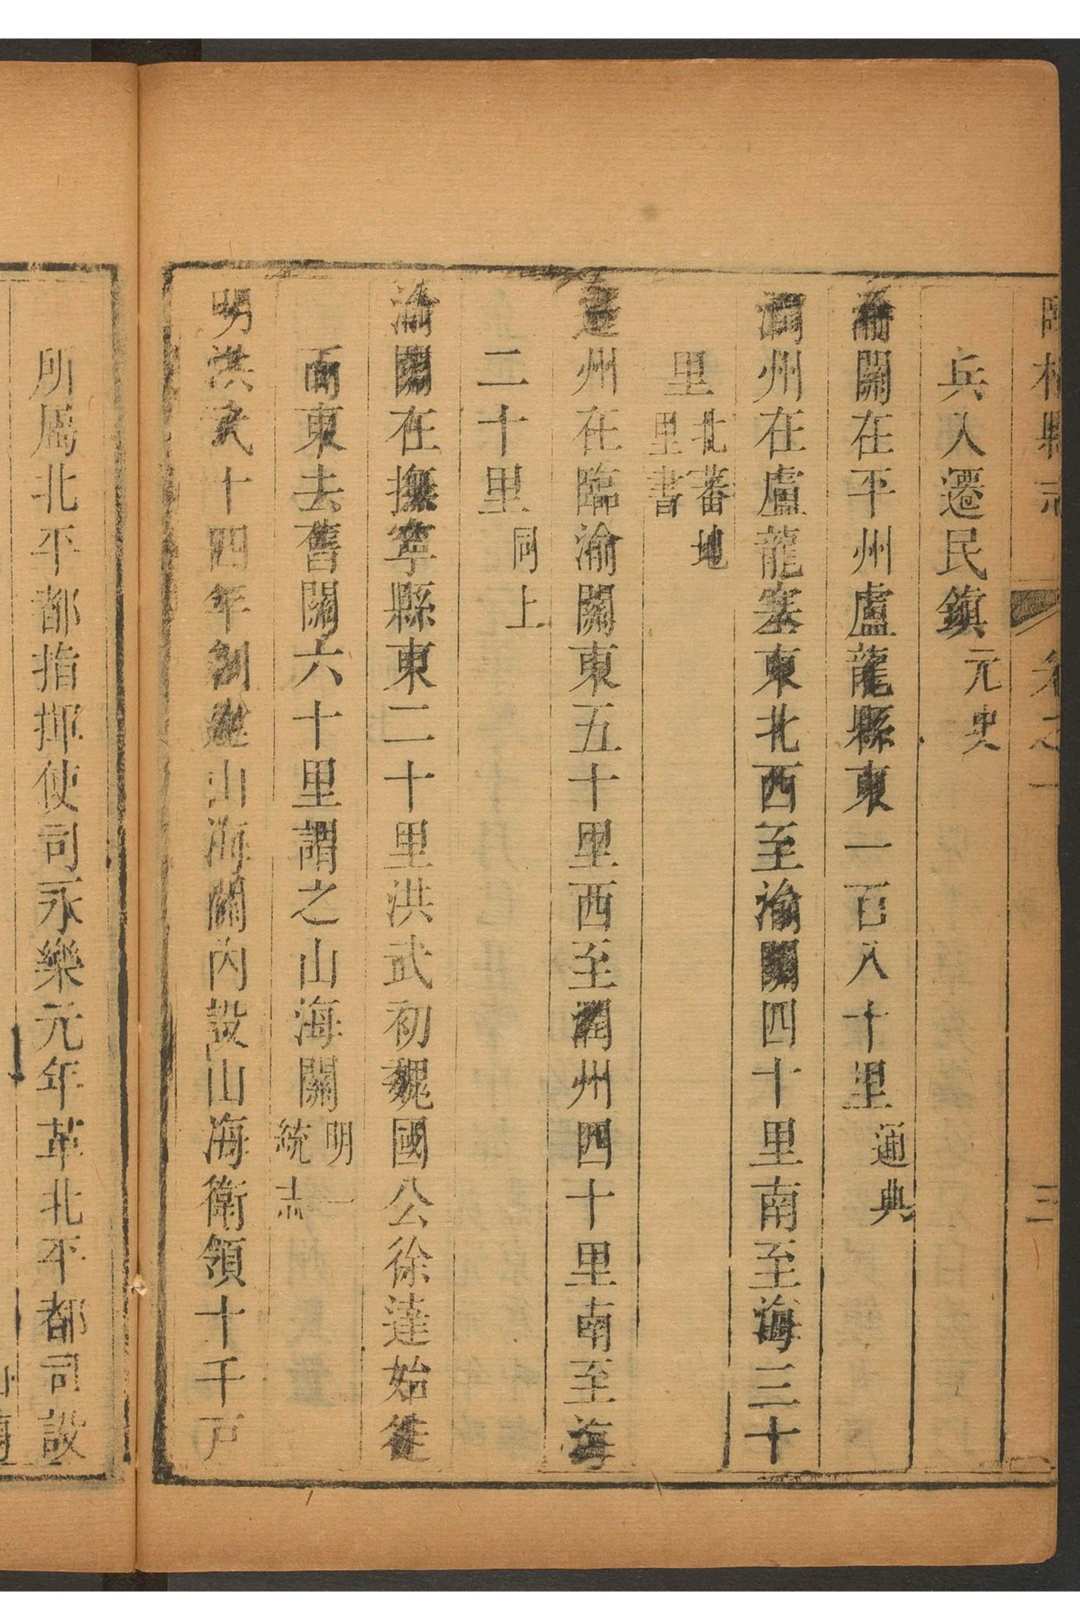 臨榆縣志 卷之一 三
兵入遷民鎮元史
渝關在平州盧龍縣東一百八十里通典
潤州在盧龍塞東北西至渝關四十里南至海三十
里北蕃地里書
遷州在臨渝關東五十里西至潤州四十里南至海
二十里同上
渝關在撫寧縣東二十里洪武初魏國公徐達始徙
而東去舊關六十里謂之山海關明一統志
明洪武十四年創建山海關內設山海衛領十千戶
所屬北平都指揮使司永樂元年革北平都司設